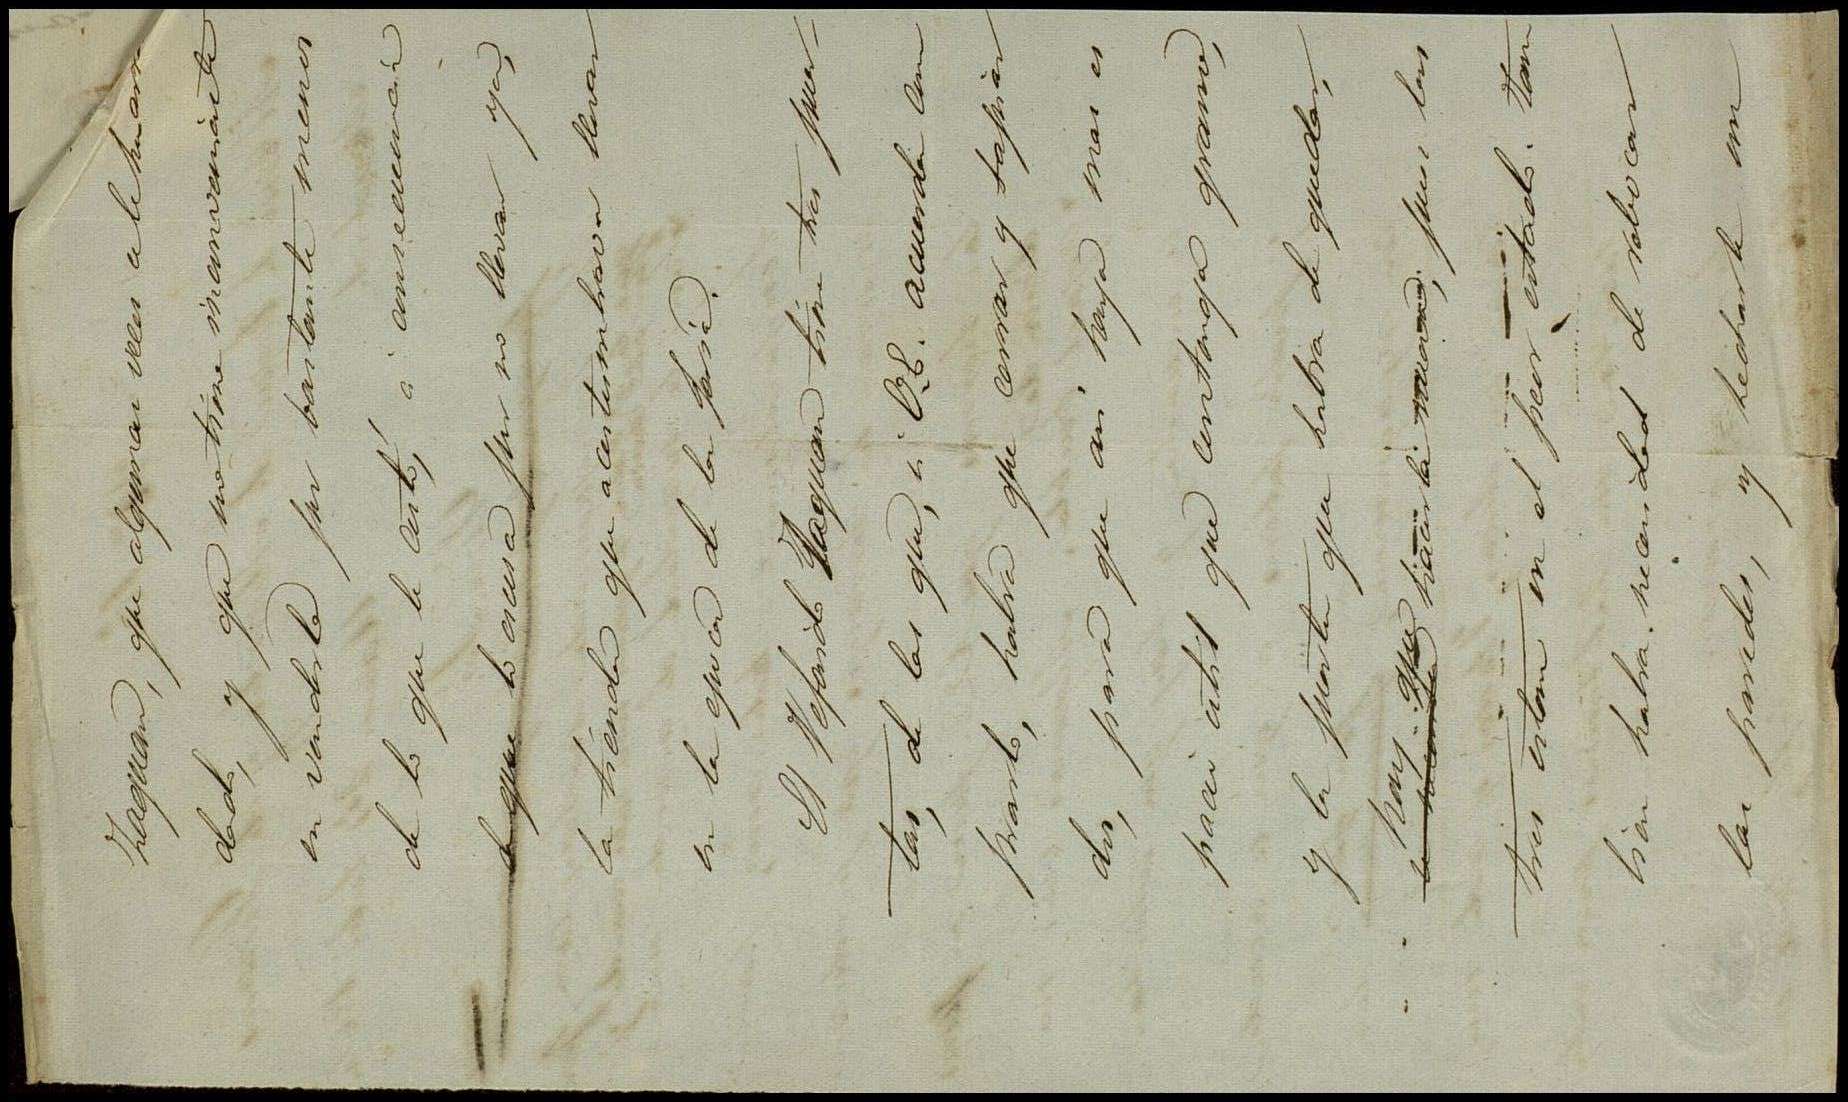 Zaguan, que algunas veces le han an
dado, y que no tiene inconveniente
en venderla por bastante menos
de lo que le costó, á consecuencia
de que lo escusa por no llevar ya,
la tienda que acostumbrava llevar
en la epoca de la feria.
El referido Zaguan tiene tres puer-
tas, de las que, si V.E. acuerda com
prarlo, habra que cerrar y tapiar
dos, para que asi haya mas es
pacio util que contenga grano,
y la puerta que habra de quedar,
hay que hacerla nueva, pues las
tres estan en el peor estado. Tam
bien habra necesidad de rebocar
las paredes, y hecharle un